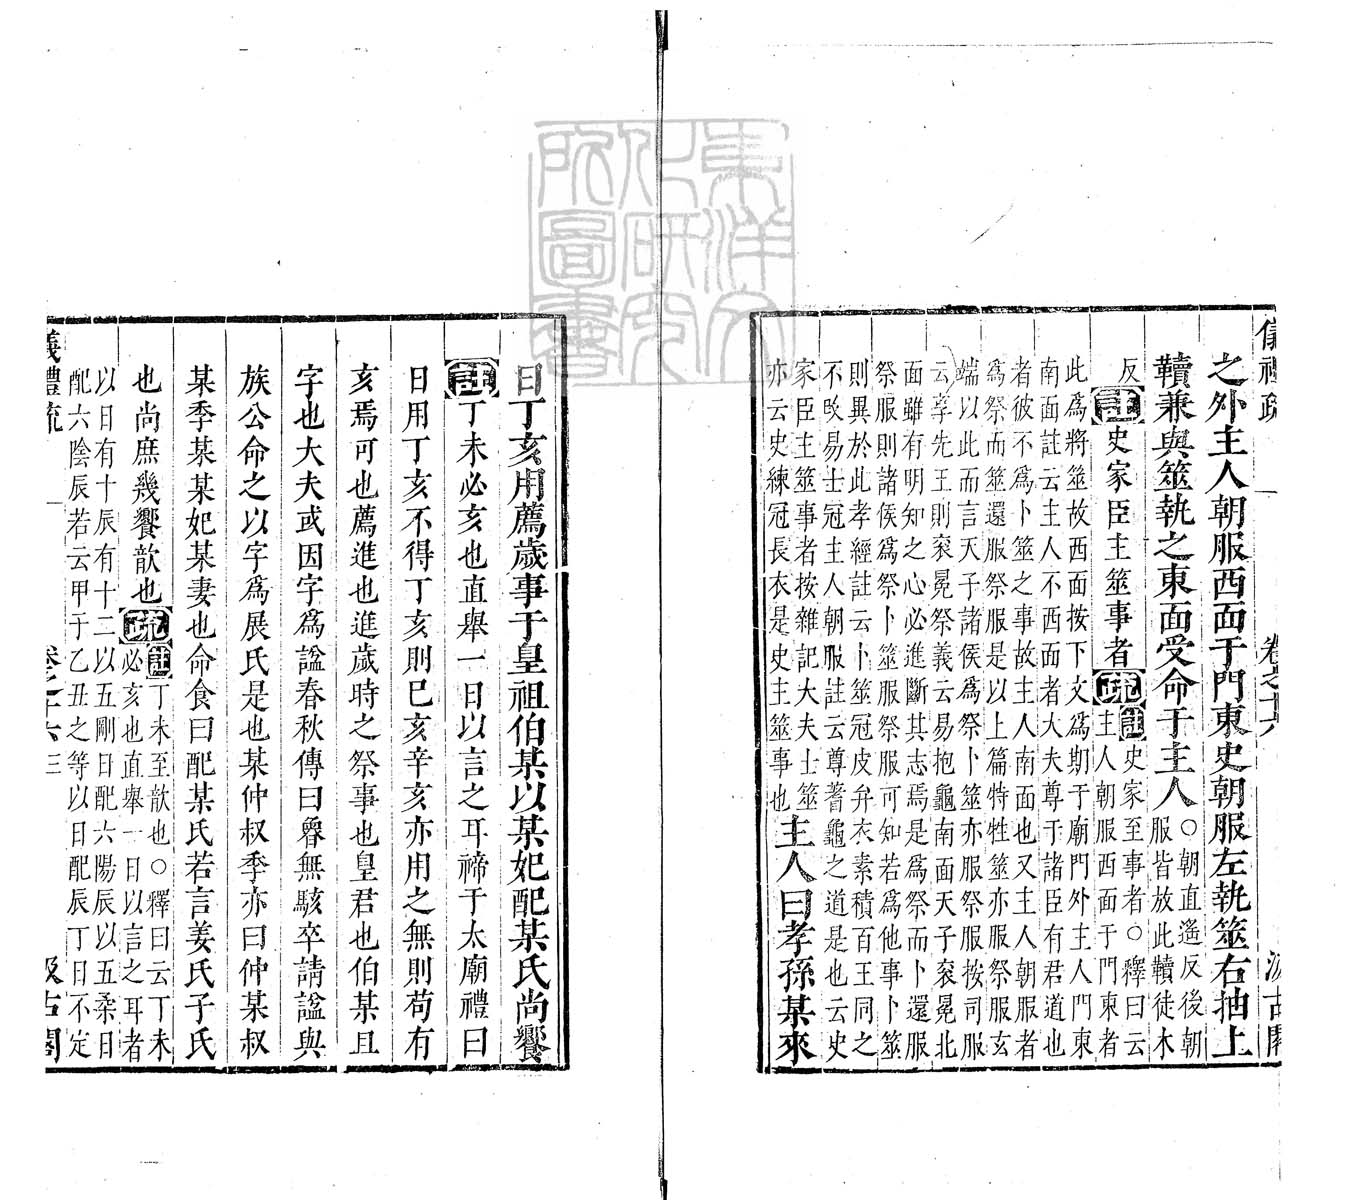 儀禮疏 卷之十六 汲古閣
之外主人朝服西面于門東史朝服左執筮右抽上
韇兼與筮執之東面受命于主人○朝直遙反後朝
服皆放此韇徒木
反註史家臣主筮事者疏註史家至事者○釋曰云
主人朝服西面于門東者
此爲將筮故西面按下文爲期于廟門外主人門東
南面註云主人不西面者大夫尊于諸臣有君道也
者彼不爲卜筮之事故主人南面也又主人朝服者
爲祭而筮還服祭服是以上篇特牲筮亦服祭服玄
端以此而言天子諸侯爲祭卜筮亦服祭服按司服
云享先王則袞冕祭義云易抱龜南面天子袞冕北
面雖有明知之心必進斷其志焉是爲祭而卜還服
祭服則諸侯爲祭卜筮服祭服可知若爲他事卜筮
則異於此孝經註云卜筮冠皮弁衣素積百王同之
不改易士冠主人朝服註云尊蓍龜之道是也云史
家臣主筮事者按雜記大夫士筮
亦云史練冠長衣是史主筮事也主人曰孝孫某來
日丁亥用薦歲事于皇祖伯某以某妃配某氏尚饗
註丁未必亥也直舉一日以言之耳禘于太廟禮曰
日用丁亥不得丁亥則巳亥辛亥亦用之無則苟有
亥焉可也薦進也進歲時之祭事也皇君也伯某且
字也大夫或因字爲諡春秋傳曰魯無駭卒請諡與
族公命之以字爲展氏是也某仲叔季亦曰仲某叔
某季某某妃某妻也命食曰配某氏若言姜氏子氏
也尚庶幾饗歆也疏註丁未至歆也○釋曰云丁未
必亥也直舉一日以言之耳者
以日有十辰有十二以五剛日配六陽辰以五柔日
配六陰辰若云甲子乙丑之等以日配辰丁日不定
儀禮疏 卷之十六 三 汲古閣
東洋文化研究所圖書